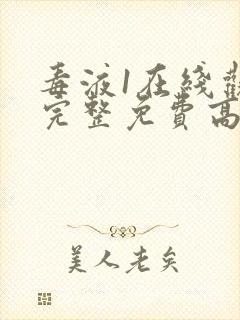 毒液1在线觀
完整免費高
美人老矣